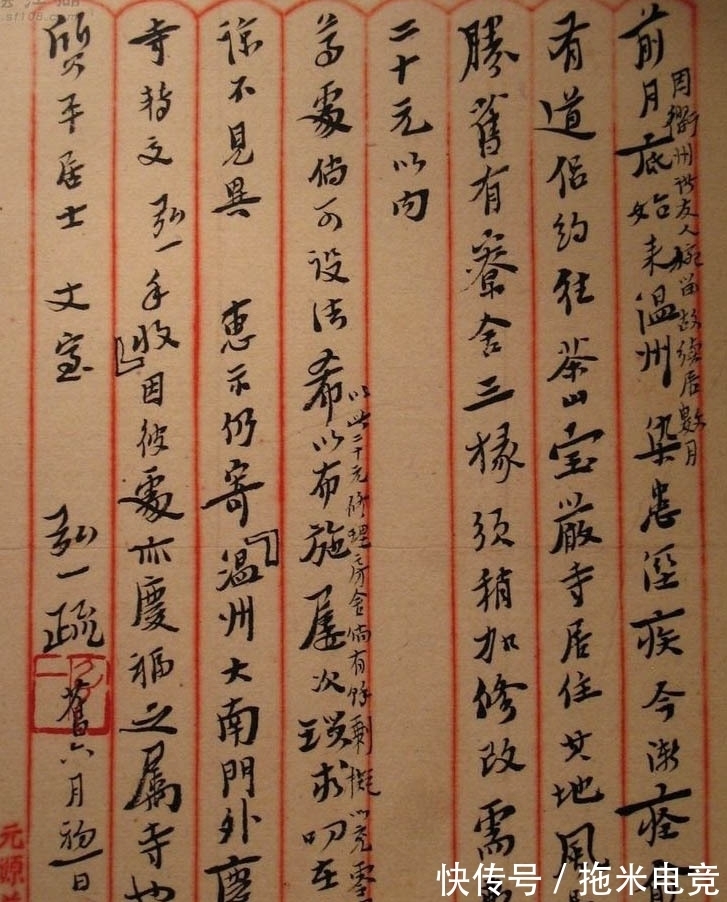 前月底始来温州染患湿疾今渐痊
因衢州诸友人挽留故续居数月
有道侣约往茶山宝严寺居住其地风
勝舊有寮舍三椽须稍加修改需
二十元以内
尊處倘可设法希以布施屡次琐求叨在
以此二十元修理房舍倘有馀剩拟以充零
谅不見異 惠示仍寄『温州大南門外慶
寺转交弘一手收』因彼處亦慶福之属寺也
质平居士 丈室 弘一疏 舊六月初一日
元源
sf108.com
快传号／拖米电竞